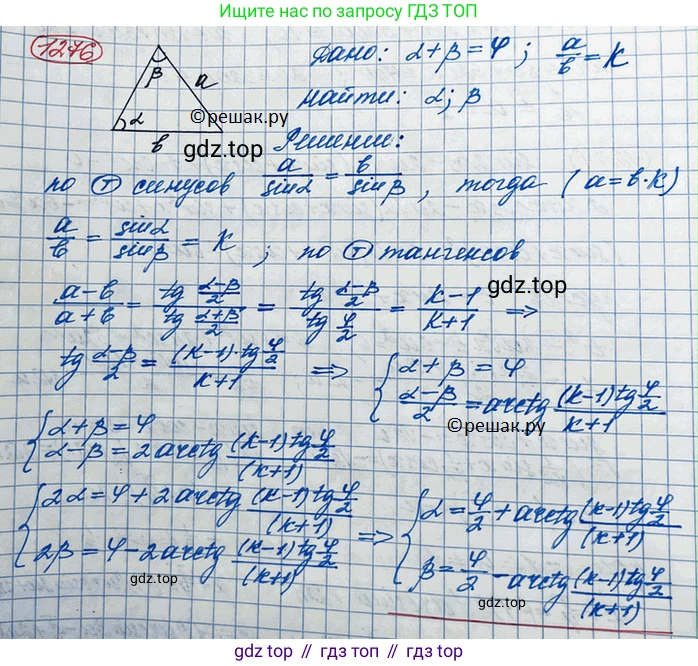 Ищите нас по запросу ГДЗ ТОП
1276
Дано: α+β=φ; a/b=k
β a
α
b
Найти: α; β
©решак.ру
gdz.top
Решение:
по Ⓣ синусов a/sinα = b/sinβ, тогда (a=b·k)
a/b = sinα/sinβ = k; по Ⓣ тангенсов
gdz.top
(a-b)/(a+b) = tg (α-β)/2 / tg (α+β)/2 = tg (α-β)/2 / tg φ/2 = (k-1)/(k+1) ⇒
tg (α-β)/2 = (k-1)·tg φ/2 / (k+1) ⇒ { α+β=φ
(α-β)/2 = arctg (k-1)tg φ/2 / (k+1)
©решак.ру
gdz.top
{ α+β=φ
α-β=2arctg (k-1)tg φ/2 / (k+1)
{ 2α=φ+2arctg (k-1)tg φ/2 / (k+1) ⇒ { α=φ/2+arctg (k-1)tg φ/2 / (k+1)
2β=φ-2arctg (k-1)tg φ/2 / (k+1)
β=φ/2-arctg (k-1)tg φ/2 / (k+1)
gdz.top
gdz.top
gdz.top // gdz.top // gdz.top // gdz.top